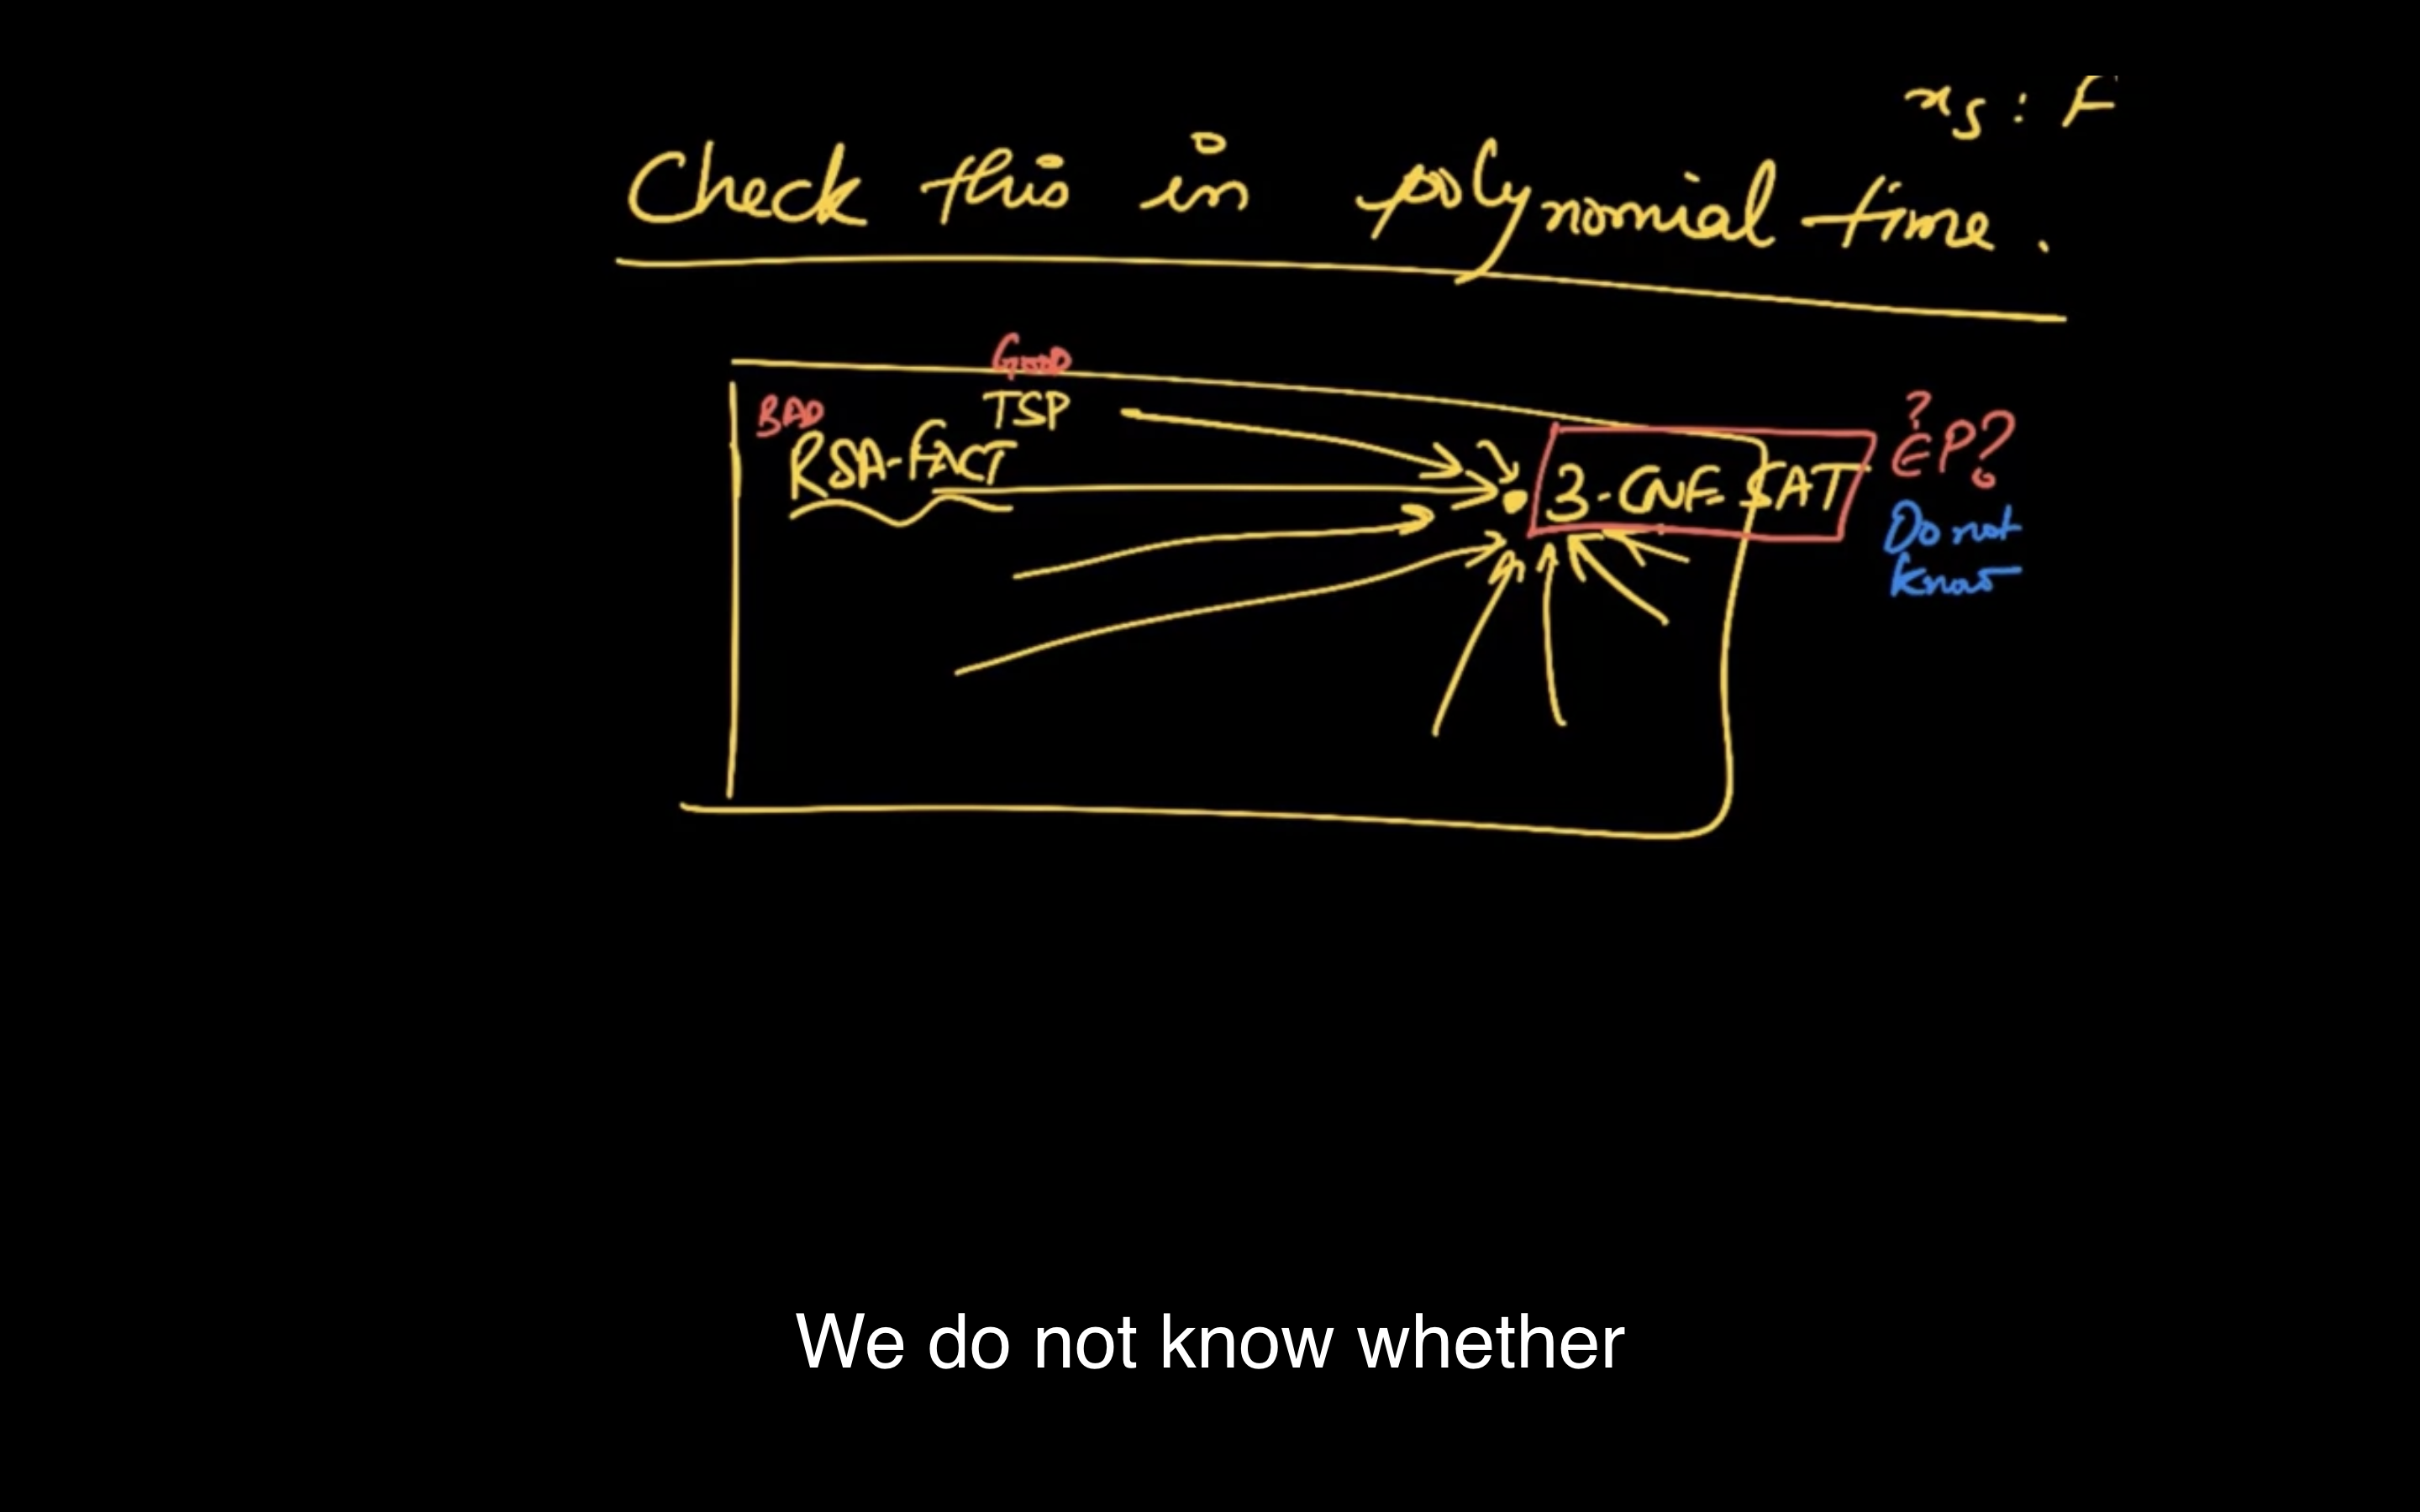 x5 : F
Check this in polynomial time.
GOOD
BAD TSP
RSA-FACT
3-CNF-SAT
?
∈P?
Do not
know
We do not know whether